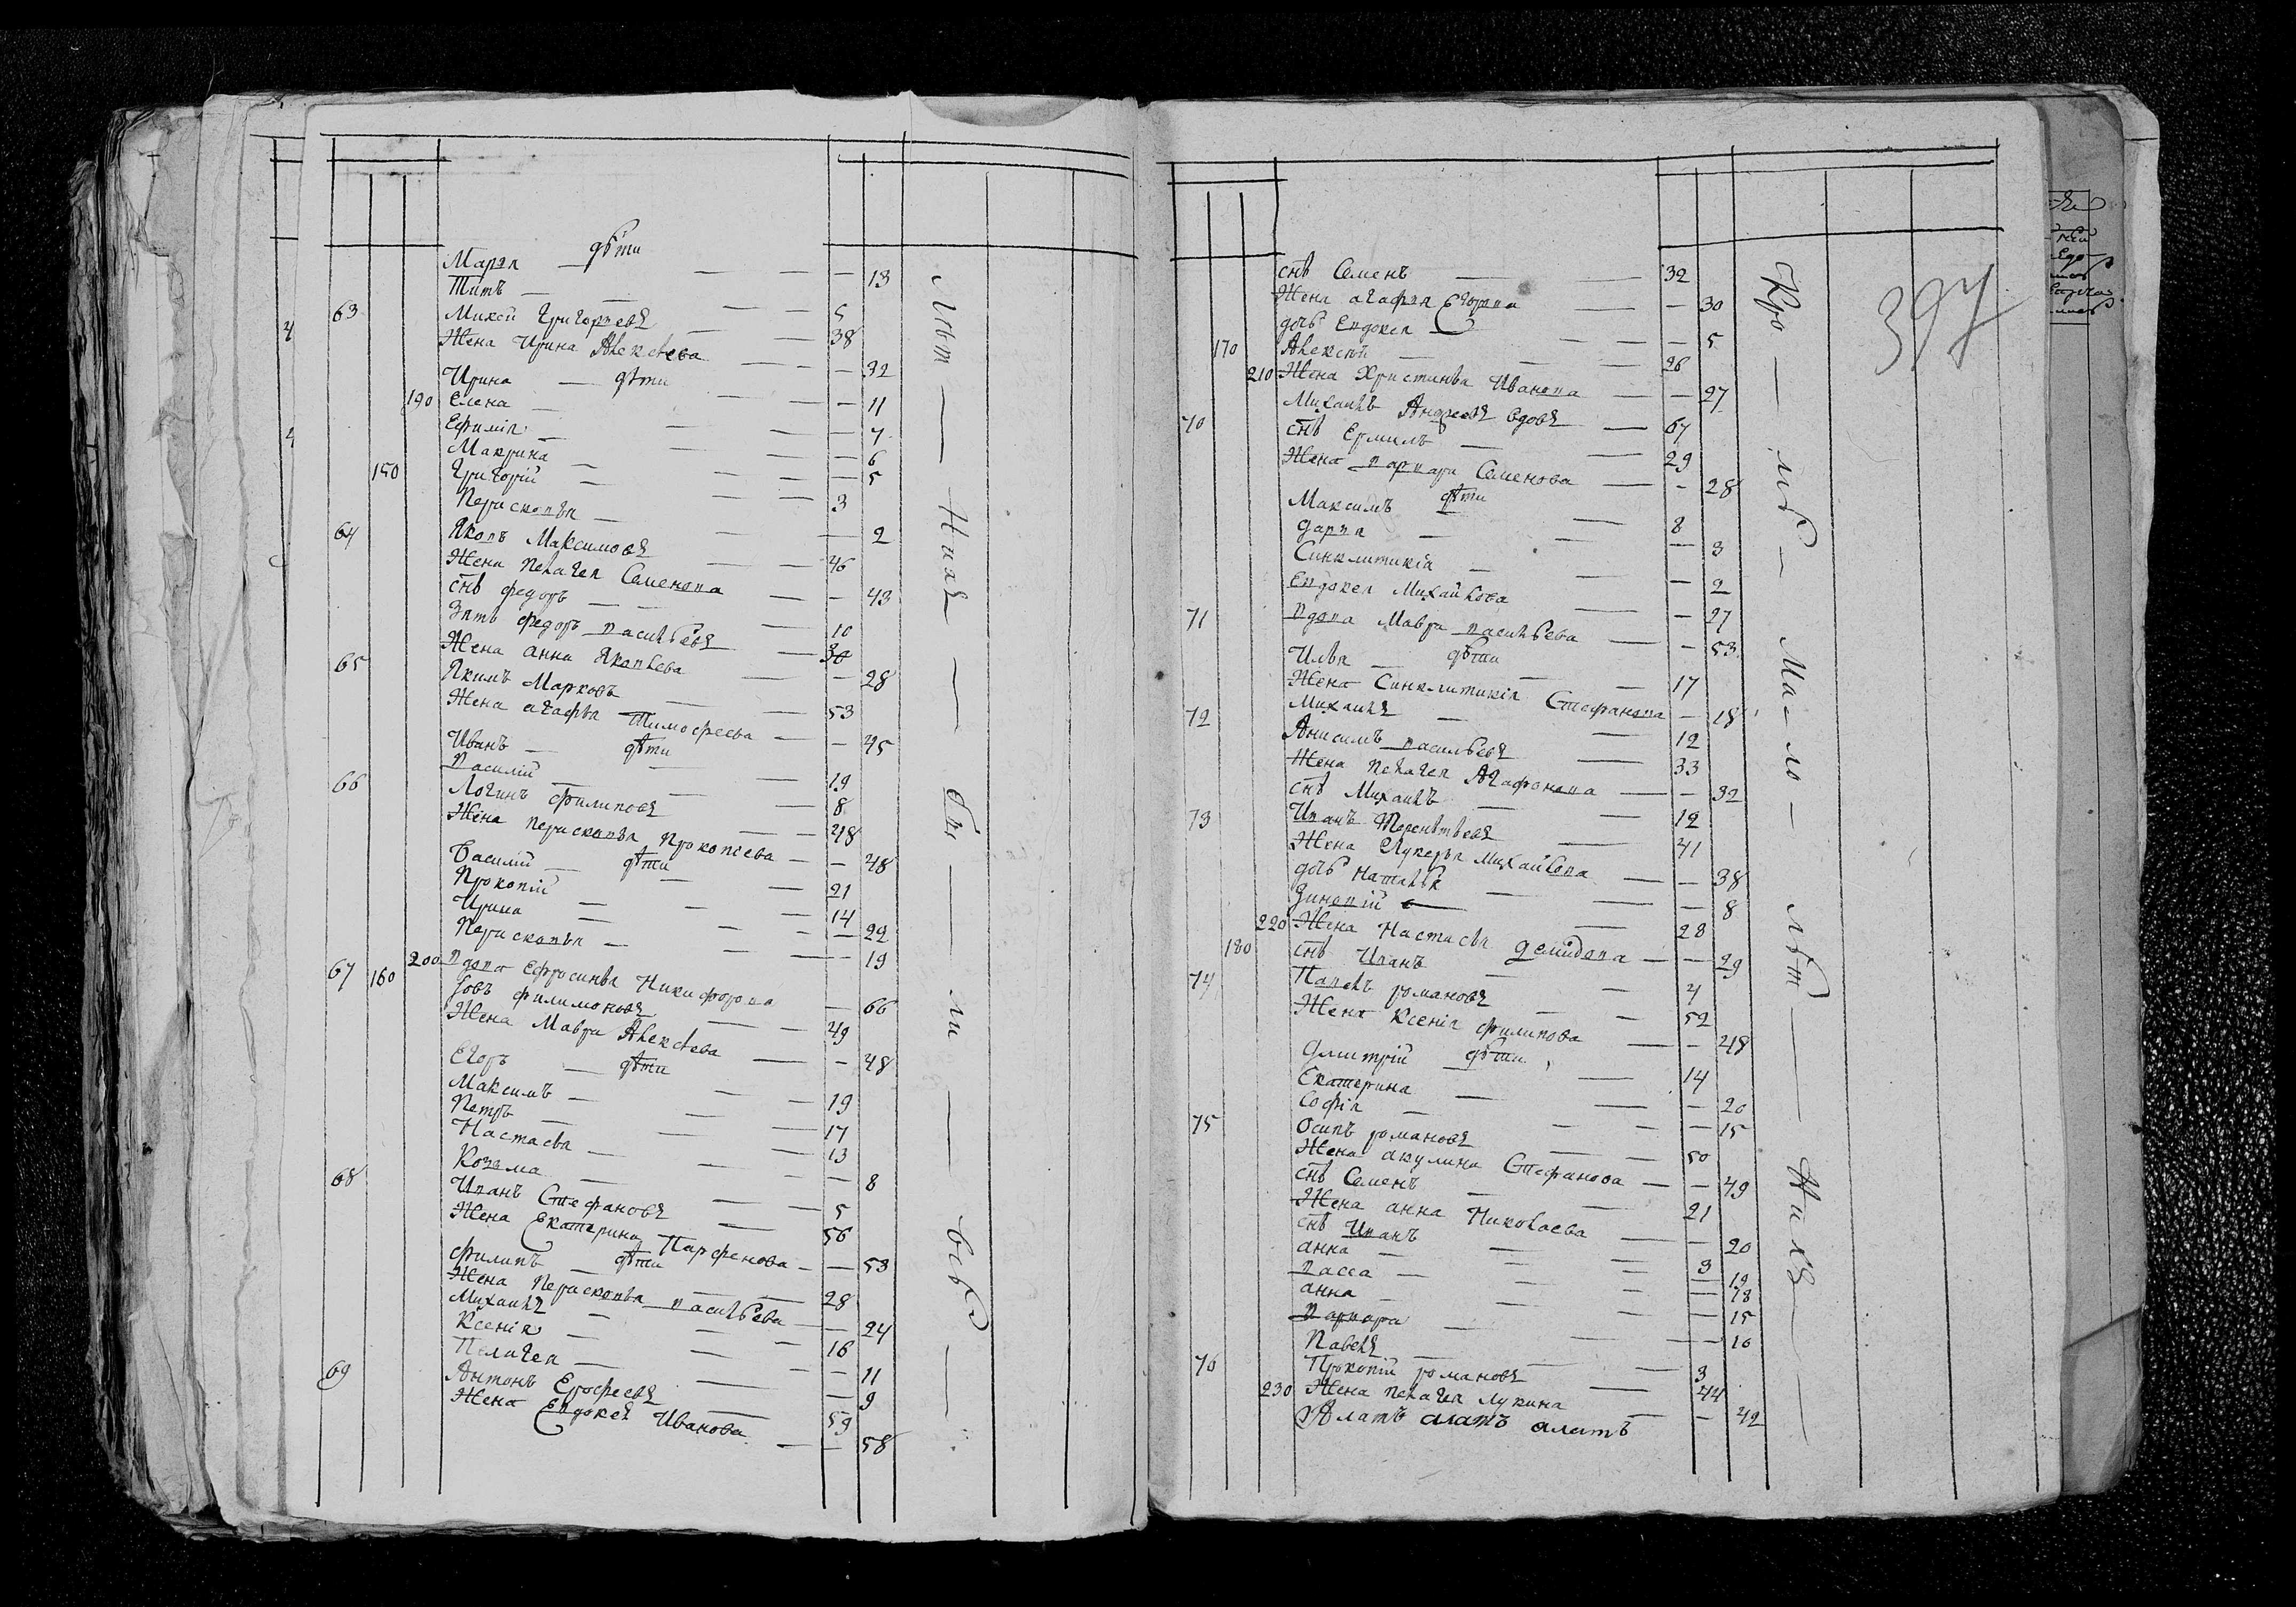 дѣти
Марья — 13
Титъ — 5
63 Михей Григорьевъ — 38
Жена Ирина Алексѣева — 32
дѣти
Ирина — 11
190 Елена — 7
Ефимія — 6
Макрина — 5
150 Григорій — 3
Перасковья — 2
64 Яковъ Максимовъ — 46
Жена Пелагея Семенова — 43
снъ Федоръ — 10
Зять Федоръ Васильевъ — 30
Жена Анна Яковлева — 28
65 Якимъ Марковъ — 53
Жена Агафья Тимофеева — 45
дѣти
Иванъ — 19
Василій — 8
66 Логинъ Филиповъ — 48
Жена Перасковья Прокопіева — 48
дѣти
Василій — 21
Прокопій — 14
Ирина — 22
Перасковья — 19
200 Вдова Ефросинья Никифорова — 66
67 160 Іовъ Филимоновъ — 49
Жена Мавра Алексѣева — 48
дѣти
Егоръ — 19
Максимъ — 17
Петръ — 13
Настасья — 8
Козма — 5
68 Иванъ Стефановъ — 56
Жена Екатерина Парфенова — 53
дѣти
Филипъ — 28
Жена Перасковья Васильева — 24
Михаилъ — 16
Ксенія — 11
Пелагея — 9
69 Антонъ Ерофеевъ — 59
Жена Евдокея Иванова — 58
Лѣт — нихъ — бы — ли — всѣ —
397
снъ Семенъ — 32
Жена Агафья Егорова — 30
дочь Евдокея — 5
170 Алексѣй — 26
210 Жена Христинья Иванова — 27
70 Михаилъ Андреевъ вдовъ — 67
снъ Ермилъ — 29
Жена Варвара Семенова — 28
дѣти
Максимъ — 8
Дарья — 3
Синклитикія — 2
Евдокея Михайлова — 27
71 Вдова Мавра Васильева — 53
дѣти
Илья — 17
Жена Синклитикія Стефанова — 18
Михаилъ — 12
72 Анисимъ Васильевъ — 33
Жена Пелагея Агафонова — 32
снъ Михаилъ — 12
73 Иванъ Терентьевъ — 41
Жена Лукерья Михайлова — 38
дочь Наталья — 8
Зиновій — 28
220 Жена Настасья Демидова — 29
180 снъ Иванъ — 4
74 Павелъ Романовъ — 52
Жена Ксенія Филипова — 48
дѣти
Дмитрій — 14
Екатерина — 20
Софія — 15
75 Осипъ Романовъ — 50
Жена Акулина Стефанова — 49
снъ Семенъ — 21
Жена Анна Николаева — 20
снъ Иванъ — 3
Анна — 19
Васса — 18
Анна — 15
Варвара — 10
Павелъ — 3
76 Прокопій Романовъ — 44
230 Жена Пелагея Лукина — 42
Кро — мѣ — Ма — ло — лѣт — нихъ —